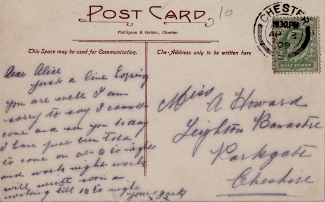 POST CARD
10
Phillipson & Golder, Chester.
This Space may be used for Communication.
The Address only to be written here
CHESTER
10.30 PM
AP 3
09
HALF PENNY
Dear Alice
Just a line hoping
you are well I am
sorry to say I cannot
come and see you to day
I have just been told
to come on at 6 to night
and work night work
will write soon am
working till 12 to night
yours
Miss A Howard
Leighton Banastre
Parkgate
Cheshire